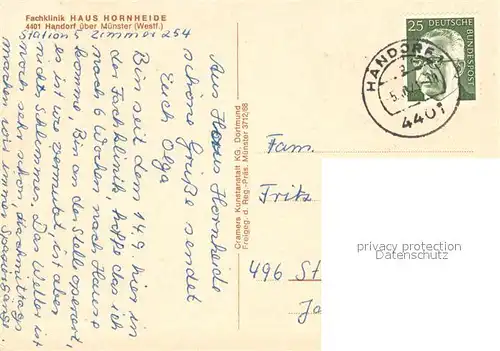 Fachklinik HAUS HORNHEIDE
4401 Handorf über Münster (Westf.)
Station 5 Zimmer 254
Aus Haus Hornheide
schöne Grüße sendet
Euch Olga
Bin seit dem 14.9. hier in
der Fachklinik, hoffe das ich
nach 6 Wochen nach Hause
komme, Bin an der Stelle operiert,
es ist wie vermutet, ist aber
nichts Schlimmes. Das Wetter ist
noch sehr schön, nachmittags
machen wir immer Spaziergänge.
Cramers Kunstanstalt KG., Dortmund
Freigeg. d. Reg.-Präs. Münster 3712/68
25 DEUTSCHE
BUNDESPOST
HANDORF
4401
Fam.
Fritz
496 St
Ja
privacy protection
Datenschutz